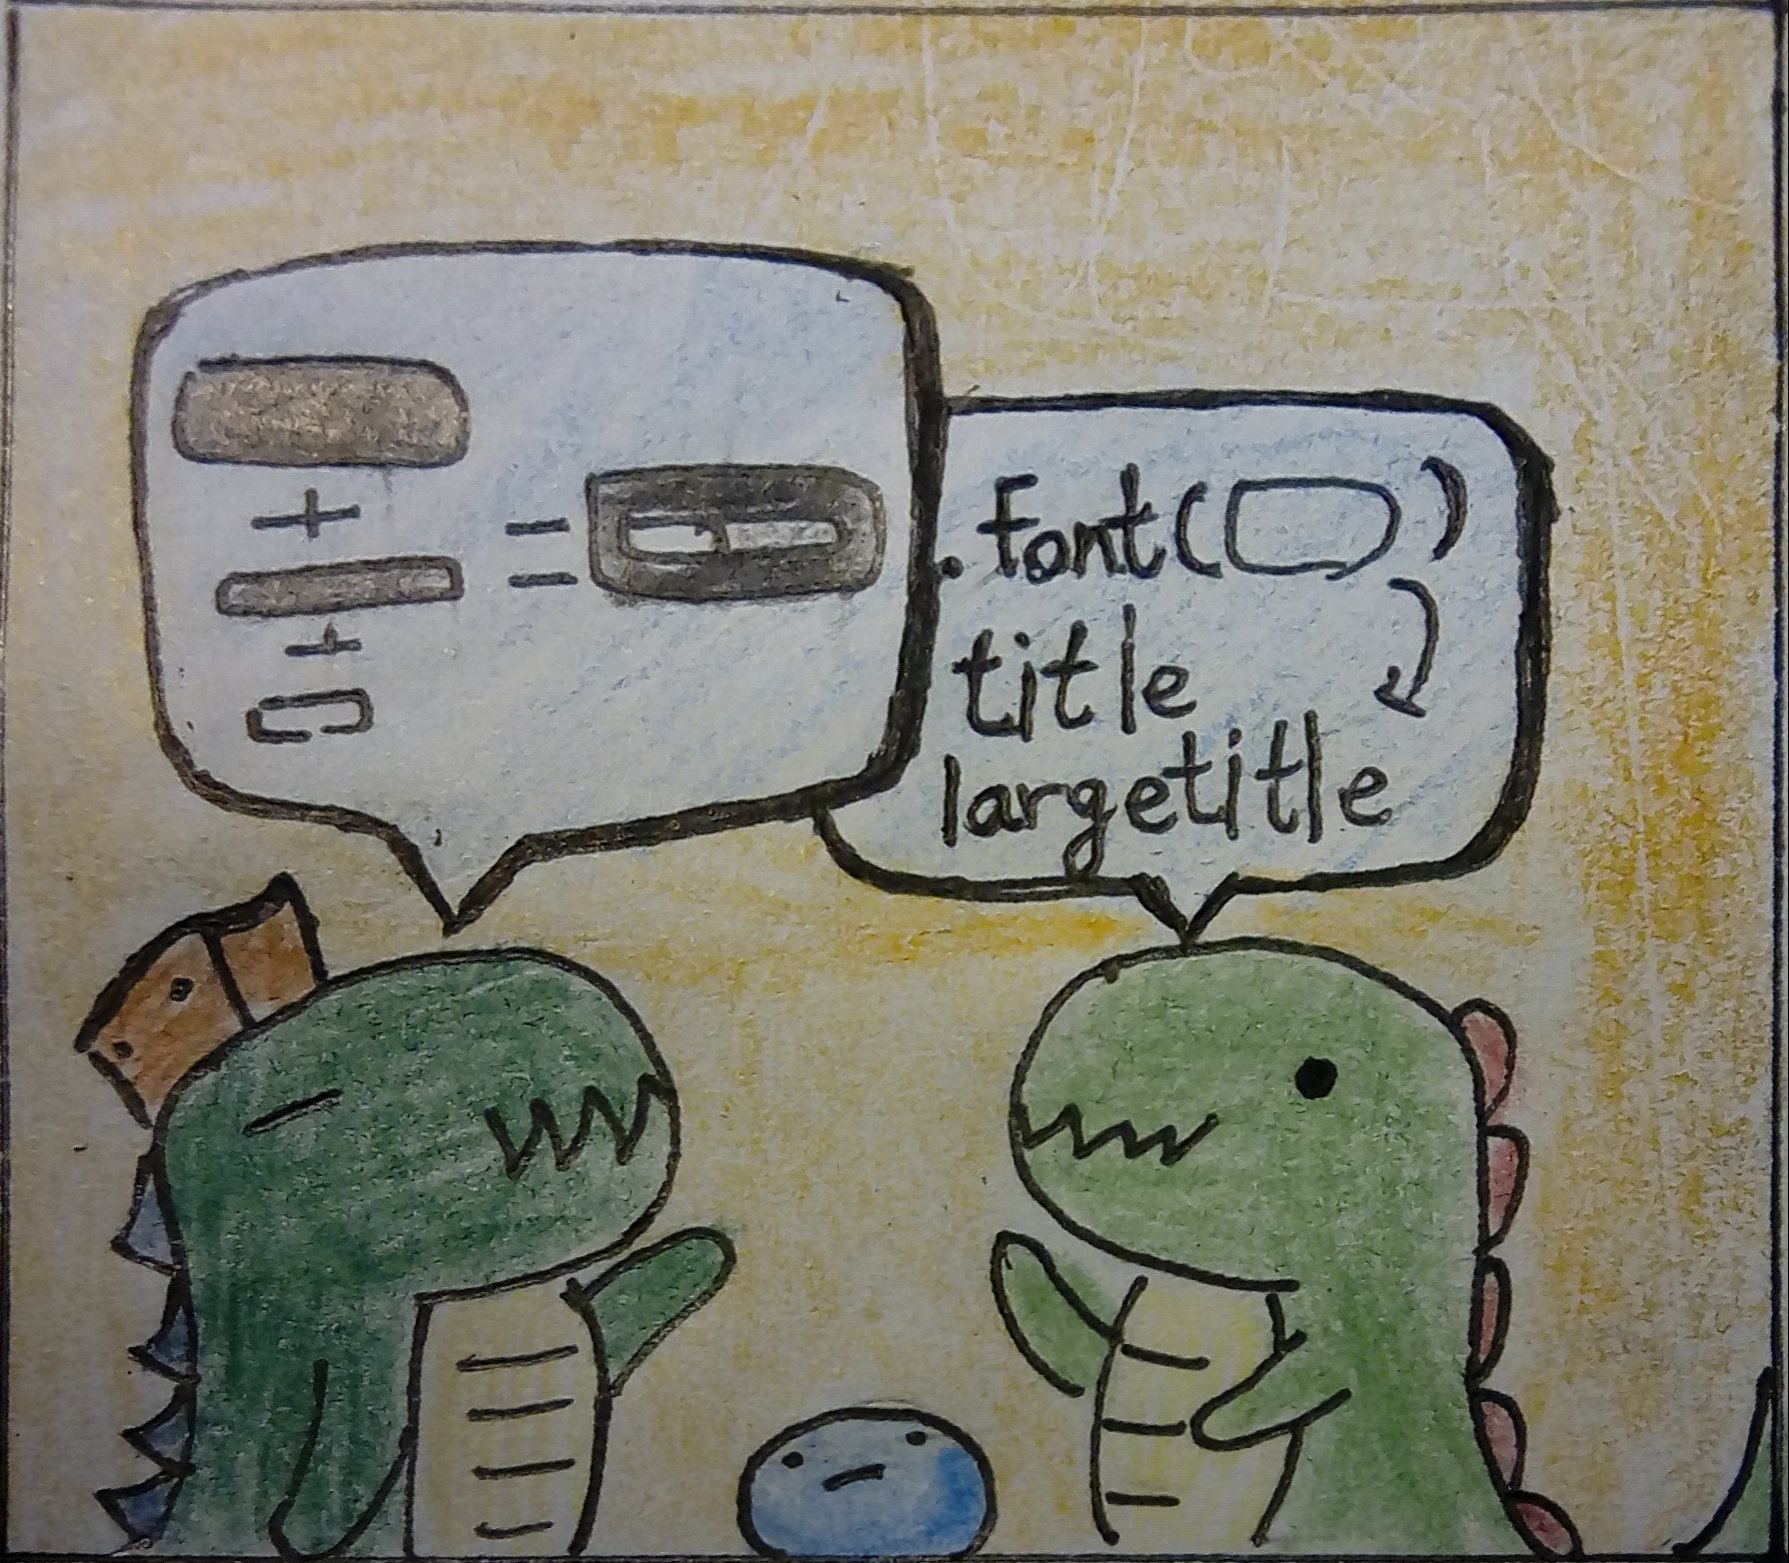 +
+
=
.font( )
title
largetitle